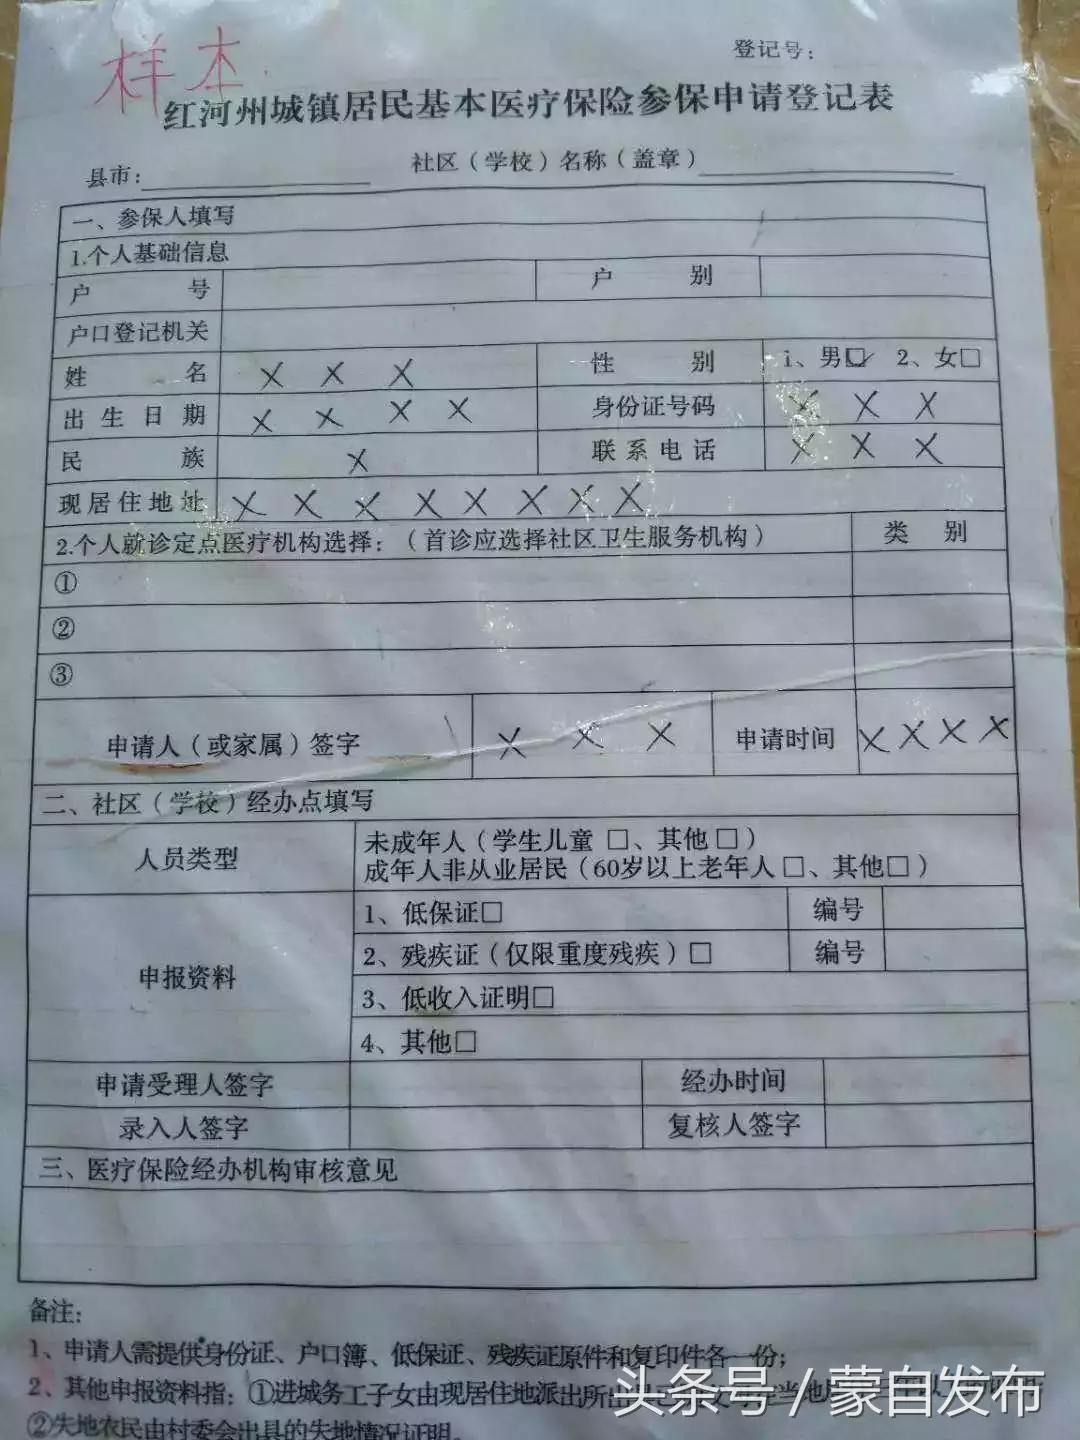 样本
登记号：
红河州城镇居民基本医疗保险参保申请登记表
县市： 社区（学校）名称（盖章）
一、参保人填写
1.个人基础信息
户号 户别
户口登记机关
姓名 X X X 性别 1、男☑ 2、女□
出生日期 X X X X 身份证号码 X X X
民族 X 联系电话 X X X
现居住地址 X X X X X X X X
2.个人就诊定点医疗机构选择：（首诊应选择社区卫生服务机构） 类别
①
②
③
申请人（或家属）签字 X X X 申请时间 X X X X
二、社区（学校）经办点填写
人员类型 未成年人（学生儿童 □、其他 □）
成年人非从业居民（60岁以上老年人 □、其他□）
申报资料 1、低保证□ 编号
2、残疾证（仅限重度残疾）□ 编号
3、低收入证明□
4、其他□
申请受理人签字 经办时间
录入人签字 复核人签字
三、医疗保险经办机构审核意见
备注：
1、申请人需提供身份证、户口簿、低保证、残疾证原件和复印件各一份；
2、其他申报资料指：①进城务工子女由现居住地派出所出
②失地农民由村委会出具的失地情况证明。
头条号 / 蒙自发布